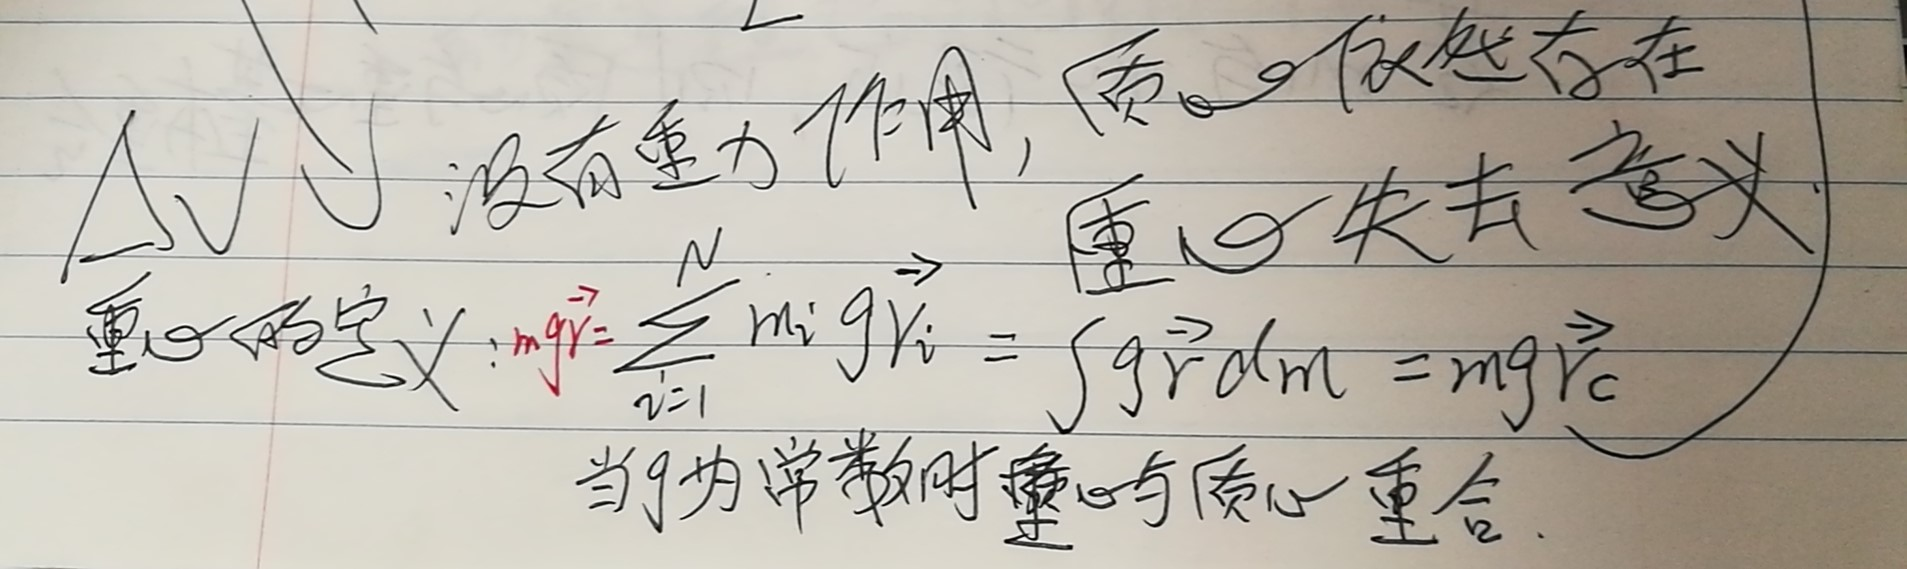 没有重力作用,质心依然存在
重心失去意义.
重心的定义:mg\vec{r}=\sum_{i=1}^{N} m_i g\vec{r}_i = \int g\vec{r}dm = mg\vec{r}_c
当g为常数时重心与质心重合.